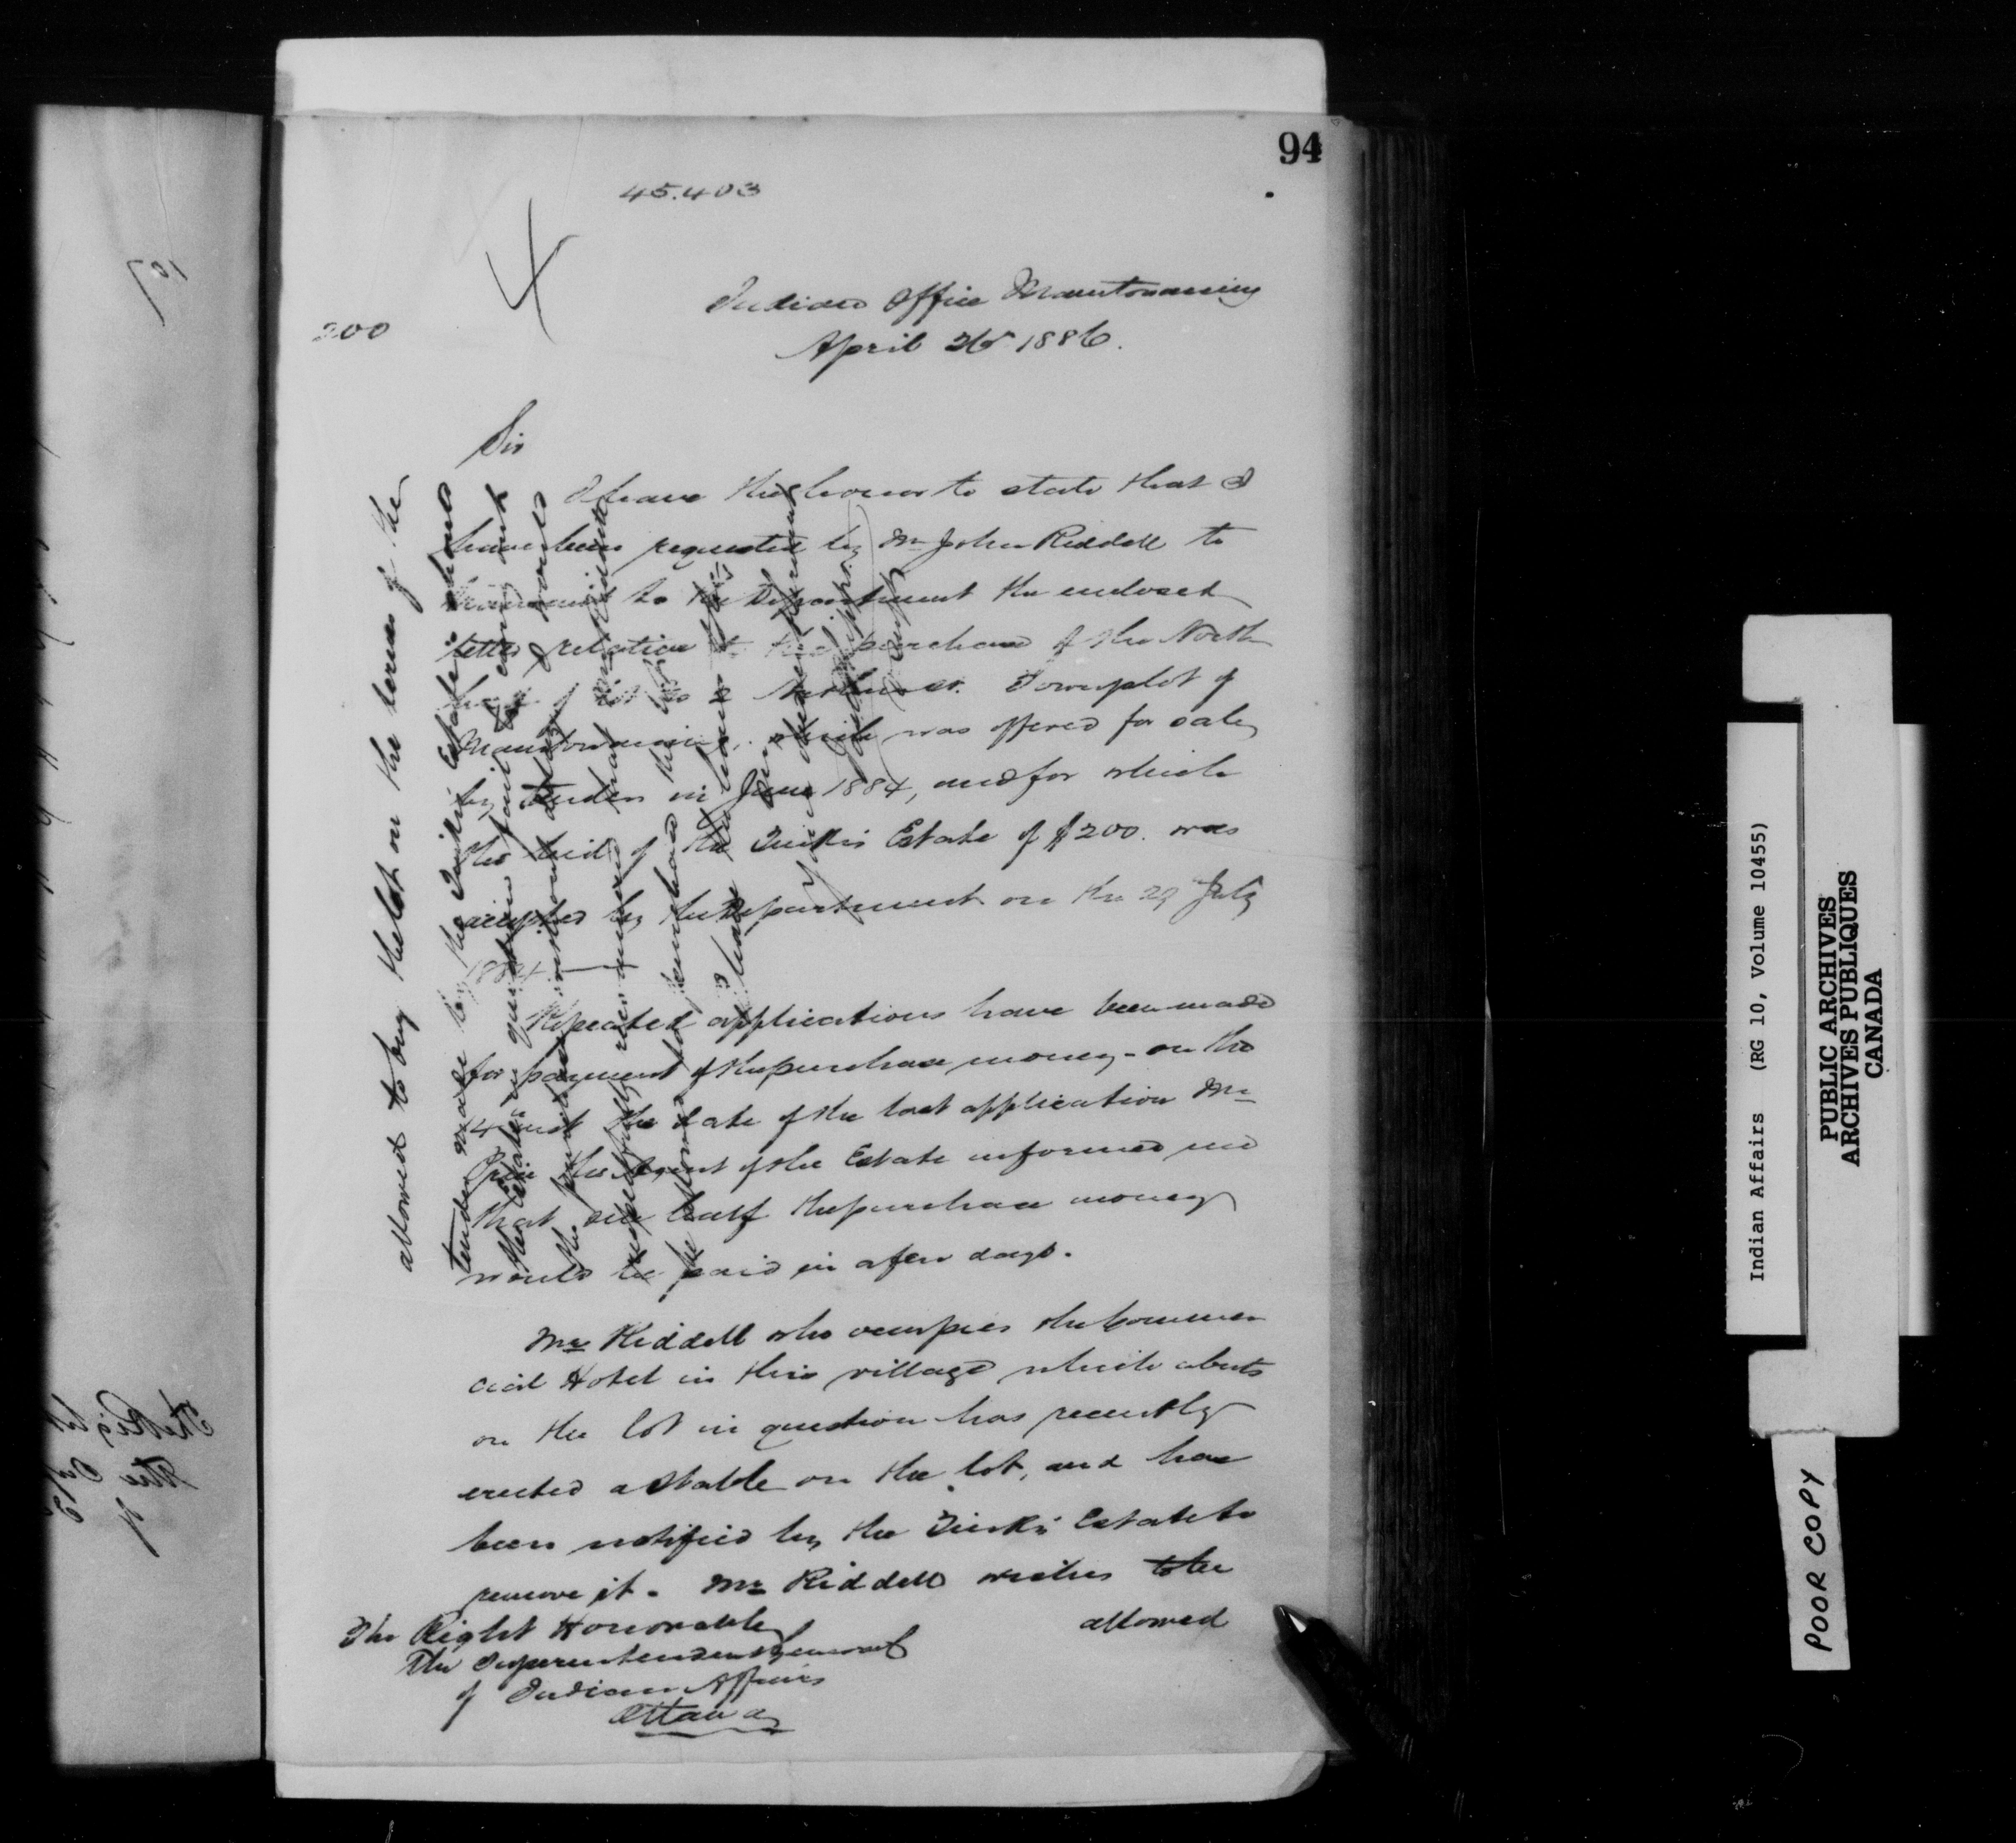 94
45.403
4
200
Indian Office Manitowaning
April 26 1886.
Sir
I have the honor to state that I
have been requested by Mr John Riddell to
transmit to the Department the enclosed
letter relative to the purchase of the North
half of lot No 2 Townplot of
Manitowaning, which was offered for sale
by tender in June 1884, and for which
the bid of the Estate of $200. was
accepted by the Department on the 29 July
1884
Repeated applications have been made
for payment of the purchase money - on the
14 inst the date of the last application Mr
the Agent of the Estate informed me
that one half the purchase money
would be paid in a few days.
Mr Riddell who occupies the Commer
cial Hotel in this village which abuts
on the lot in question has recently
erected a stable on the lot, and has
been notified by the Estate to
remove it. Mr Riddell wishes to be
allowed
The Right Honorable
The Superintendent General
of Indian Affairs
Ottawa
allowed to buy the lot on the terms of the
tender made by the Estate should
the Estate in question fail to carry out
the purchase without delay. I would
respectfully recommend that Mr Riddell
be allowed to
I have
Sir
Your obedient servant
Indian Affairs (RG 10, Volume 10455)
PUBLIC ARCHIVES
ARCHIVES PUBLIQUES
CANADA
POOR COPY